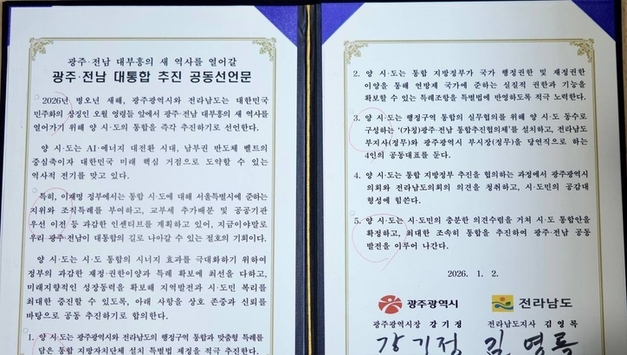 광주·전남 대부흥의 새 역사를 열어갈
광주·전남 대통합 추진 공동선언문
2026년 병오년 새해, 광주광역시와 전라남도는 대한민국
민주화의 상징인 오월 영령들 앞에서 광주·전남 대부흥의 새 역사를
열어가기 위해 양 시·도의 통합을 즉각 추진하기로 선언한다.
양 시·도는 AI·에너지 대전환 시대, 남부권 반도체 벨트의
중심축이자 대한민국 미래 핵심 거점으로 도약할 수 있는
역사적 전기를 맞고 있다.
특히, 이재명 정부에서는 통합 시·도에 대해 서울특별시에 준하는
지위와 조직특례를 부여하고, 교부세 추가배분 및 공공기관
우선 이전 등 과감한 인센티브를 계획하고 있어, 지금이야말로
우리 광주·전남이 대통합의 길로 나아갈 수 있는 천호의 기회이다.
양 시·도는 시·도 통합의 시너지 효과를 극대화하기 위하여
정부의 과감한 재정·권한이양과 특례 확보에 최선을 다하고,
미래지향적인 성장동력을 확보해 지역발전과 시·도민 복리를
최대한 증진할 수 있도록, 아래 사항을 상호 존중과 신뢰를
바탕으로 공동 추진하기로 합의한다.
1. 양 시·도는 광주광역시와 전라남도의 행정구역 통합과 맞춤형 특례를
담은 통합 지방자치단체 설치 특별법 제정을 적극 추진한다.
2. 양 시·도는 통합 지방정부가 국가 행정권한 및 재정권한
이양을 통해 연방제 국가에 준하는 실질적 권한과 기능을
확보할 수 있는 특례조항을 특별법에 반영하도록 적극 노력한다.
3. 양 시·도는 행정구역 통합의 실무협의를 위해 양 시·도 동수로
구성하는 '(가칭)광주·전남 통합추진협의체'를 설치하고, 전라남도
부지사(정무)와 광주광역시 부시장(정무)을 당연직으로 하는
4인의 공동대표를 둔다.
4. 양 시·도는 통합 지방정부 추진을 협의하는 과정에서 광주광역시
의회와 전라남도의회의 의견을 청취하고, 시·도민의 공감대
형성에 힘쓴다.
5. 양 시·도는 시·도민의 충분한 의견수렴을 거쳐 시·도 통합안을
확정하고, 최대한 조속히 통합을 추진하여 광주·전남 공동
발전을 이루어 나간다.
2026. 1. 2.
광주광역시 전라남도
광주광역시장 강기정 전라남도지사 김영록
강기정 김영록